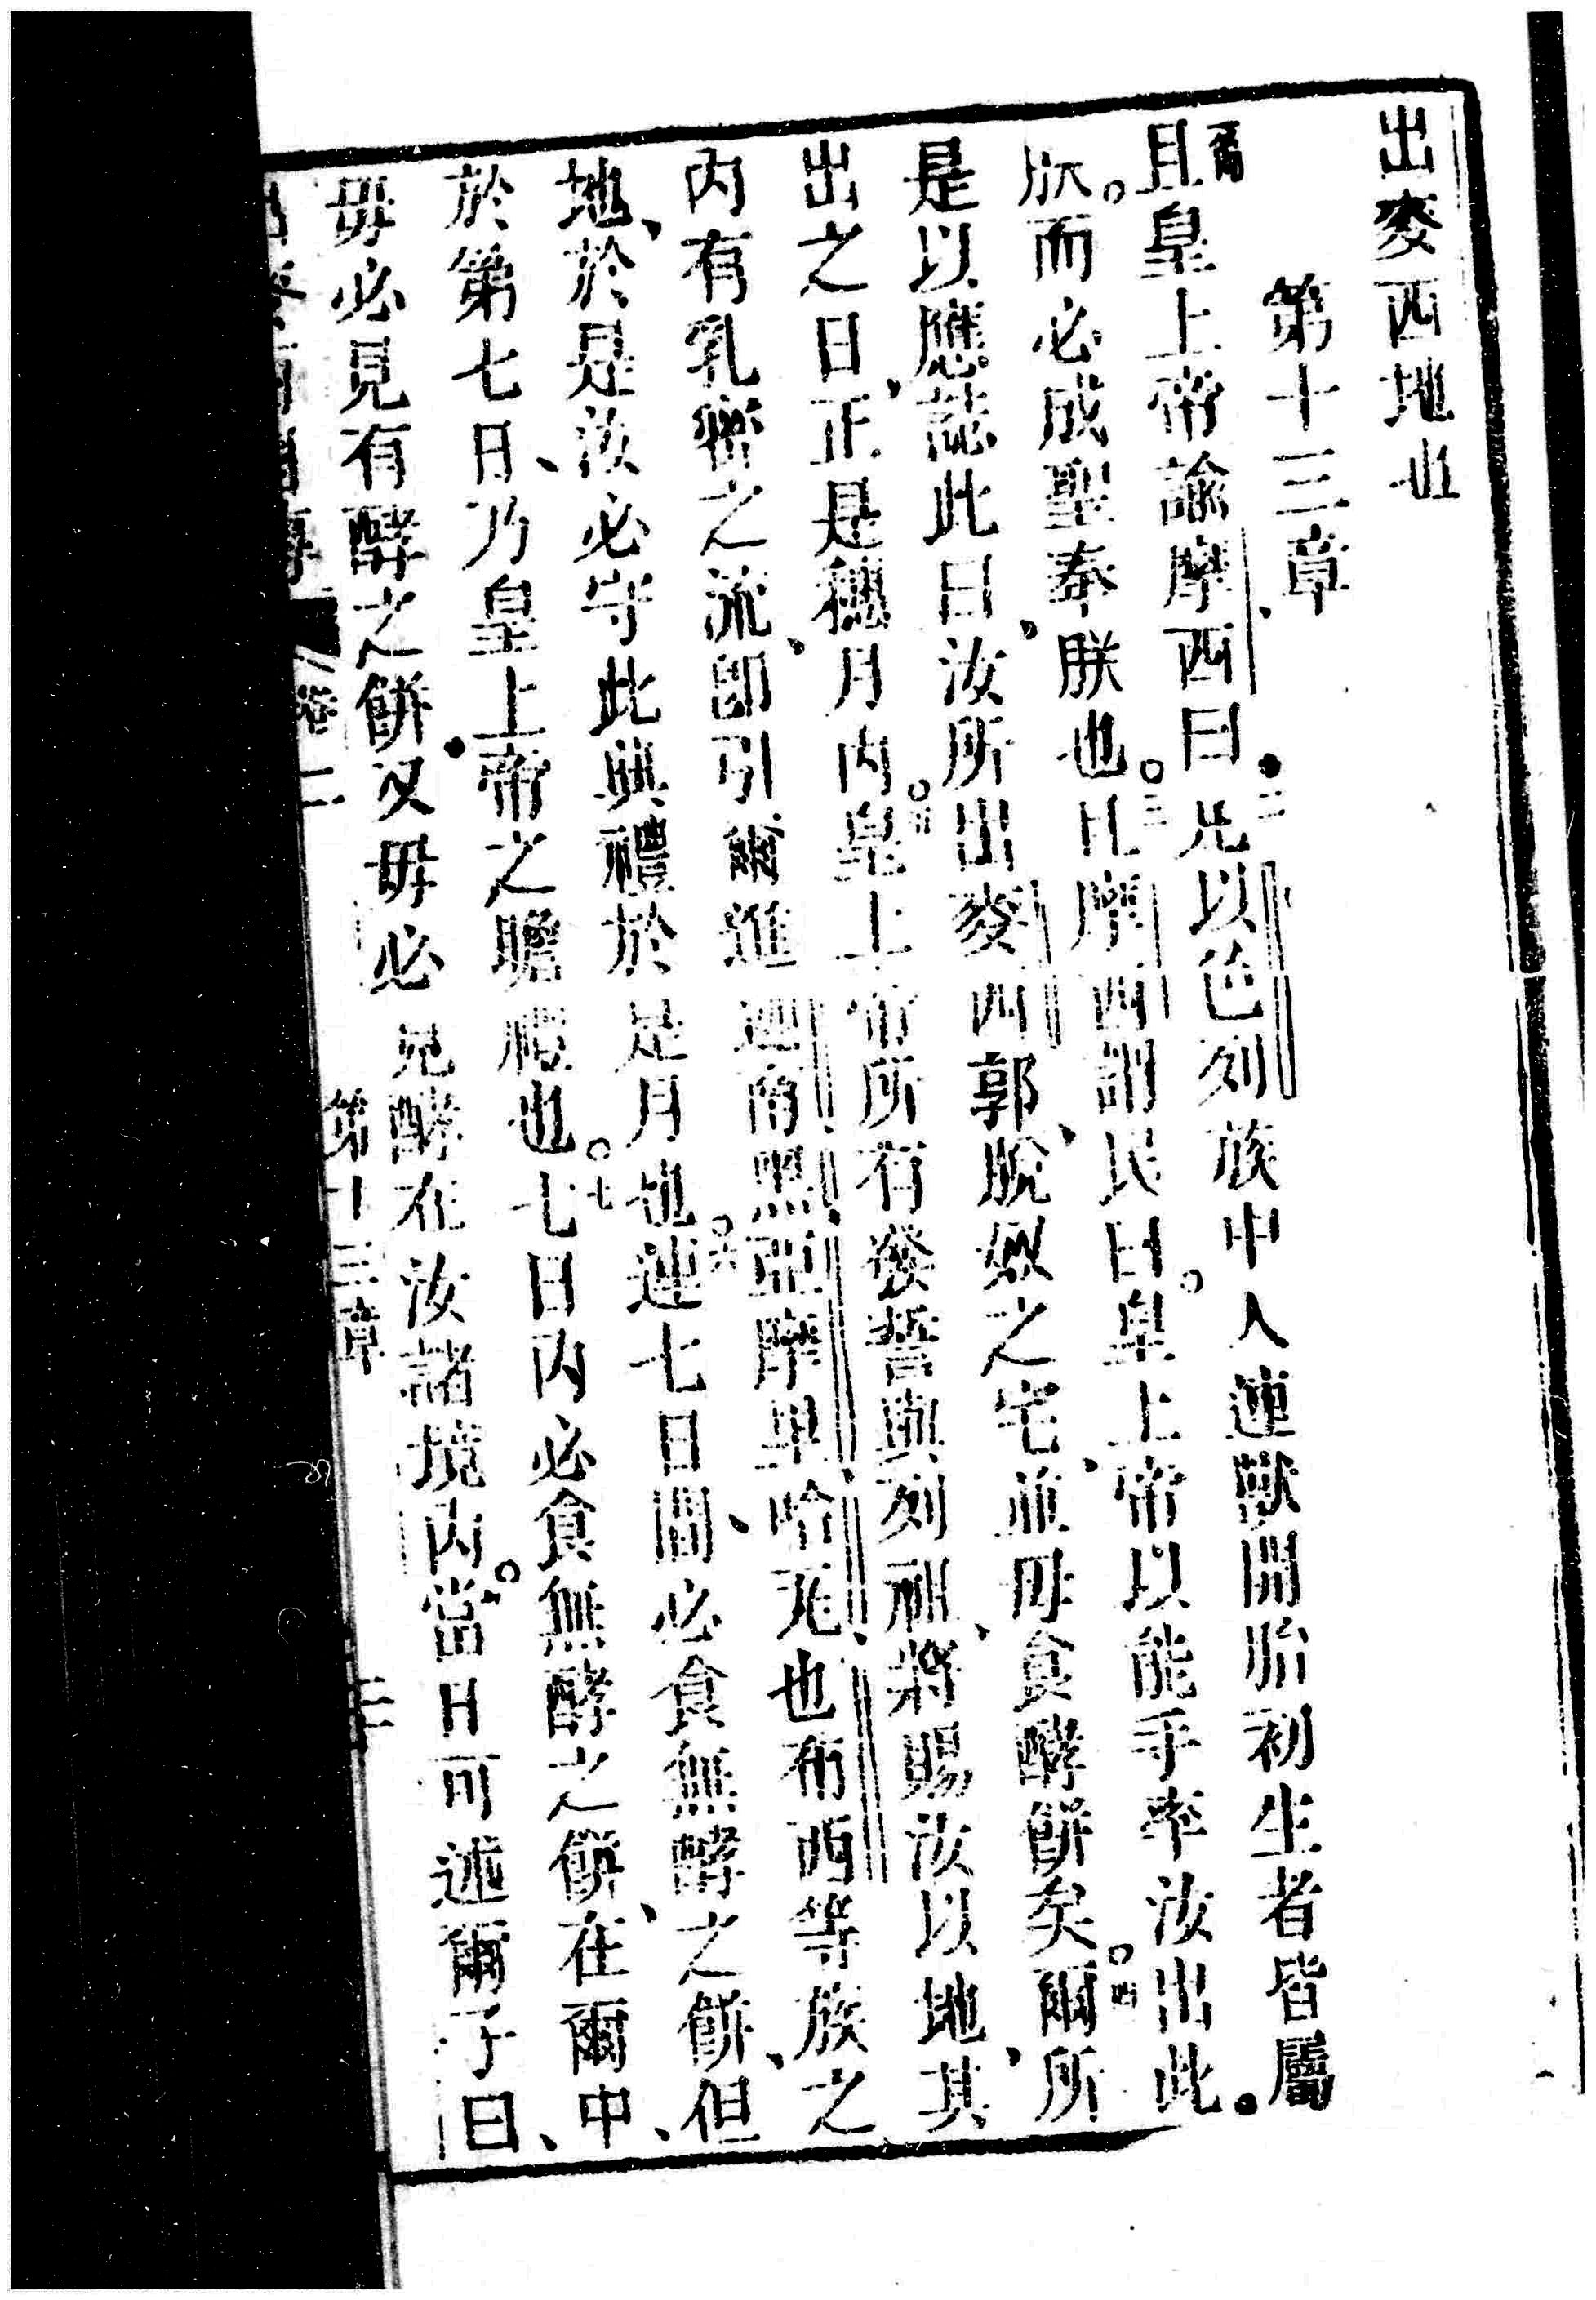 出麥西地也
第十三章
且皇上帝諭摩西曰二凡以色列族中人連獸開胎初生者皆屬
朕而必成聖奉朕也三且摩西謂民曰皇上帝以能手率汝出此
是以應誌此日汝所出麥西郭脫奴之宅並毋食酵餅矣四爾所
出之日正是穗月內五皇上帝所有發誓與列祖將賜汝以地其
內有乳蜜之流卽引爾進迦南黑亞摩哩哈元也布西等族之
地於是汝必守此典禮於是月也六連七日間必食無酵之餅但
於第七日乃皇上帝之瞻禮也七七日內必食無酵之餅在爾中
毋必見有酵之餅又毋必見酵在汝諸境內八當日可述爾子曰
卷二 第十三章